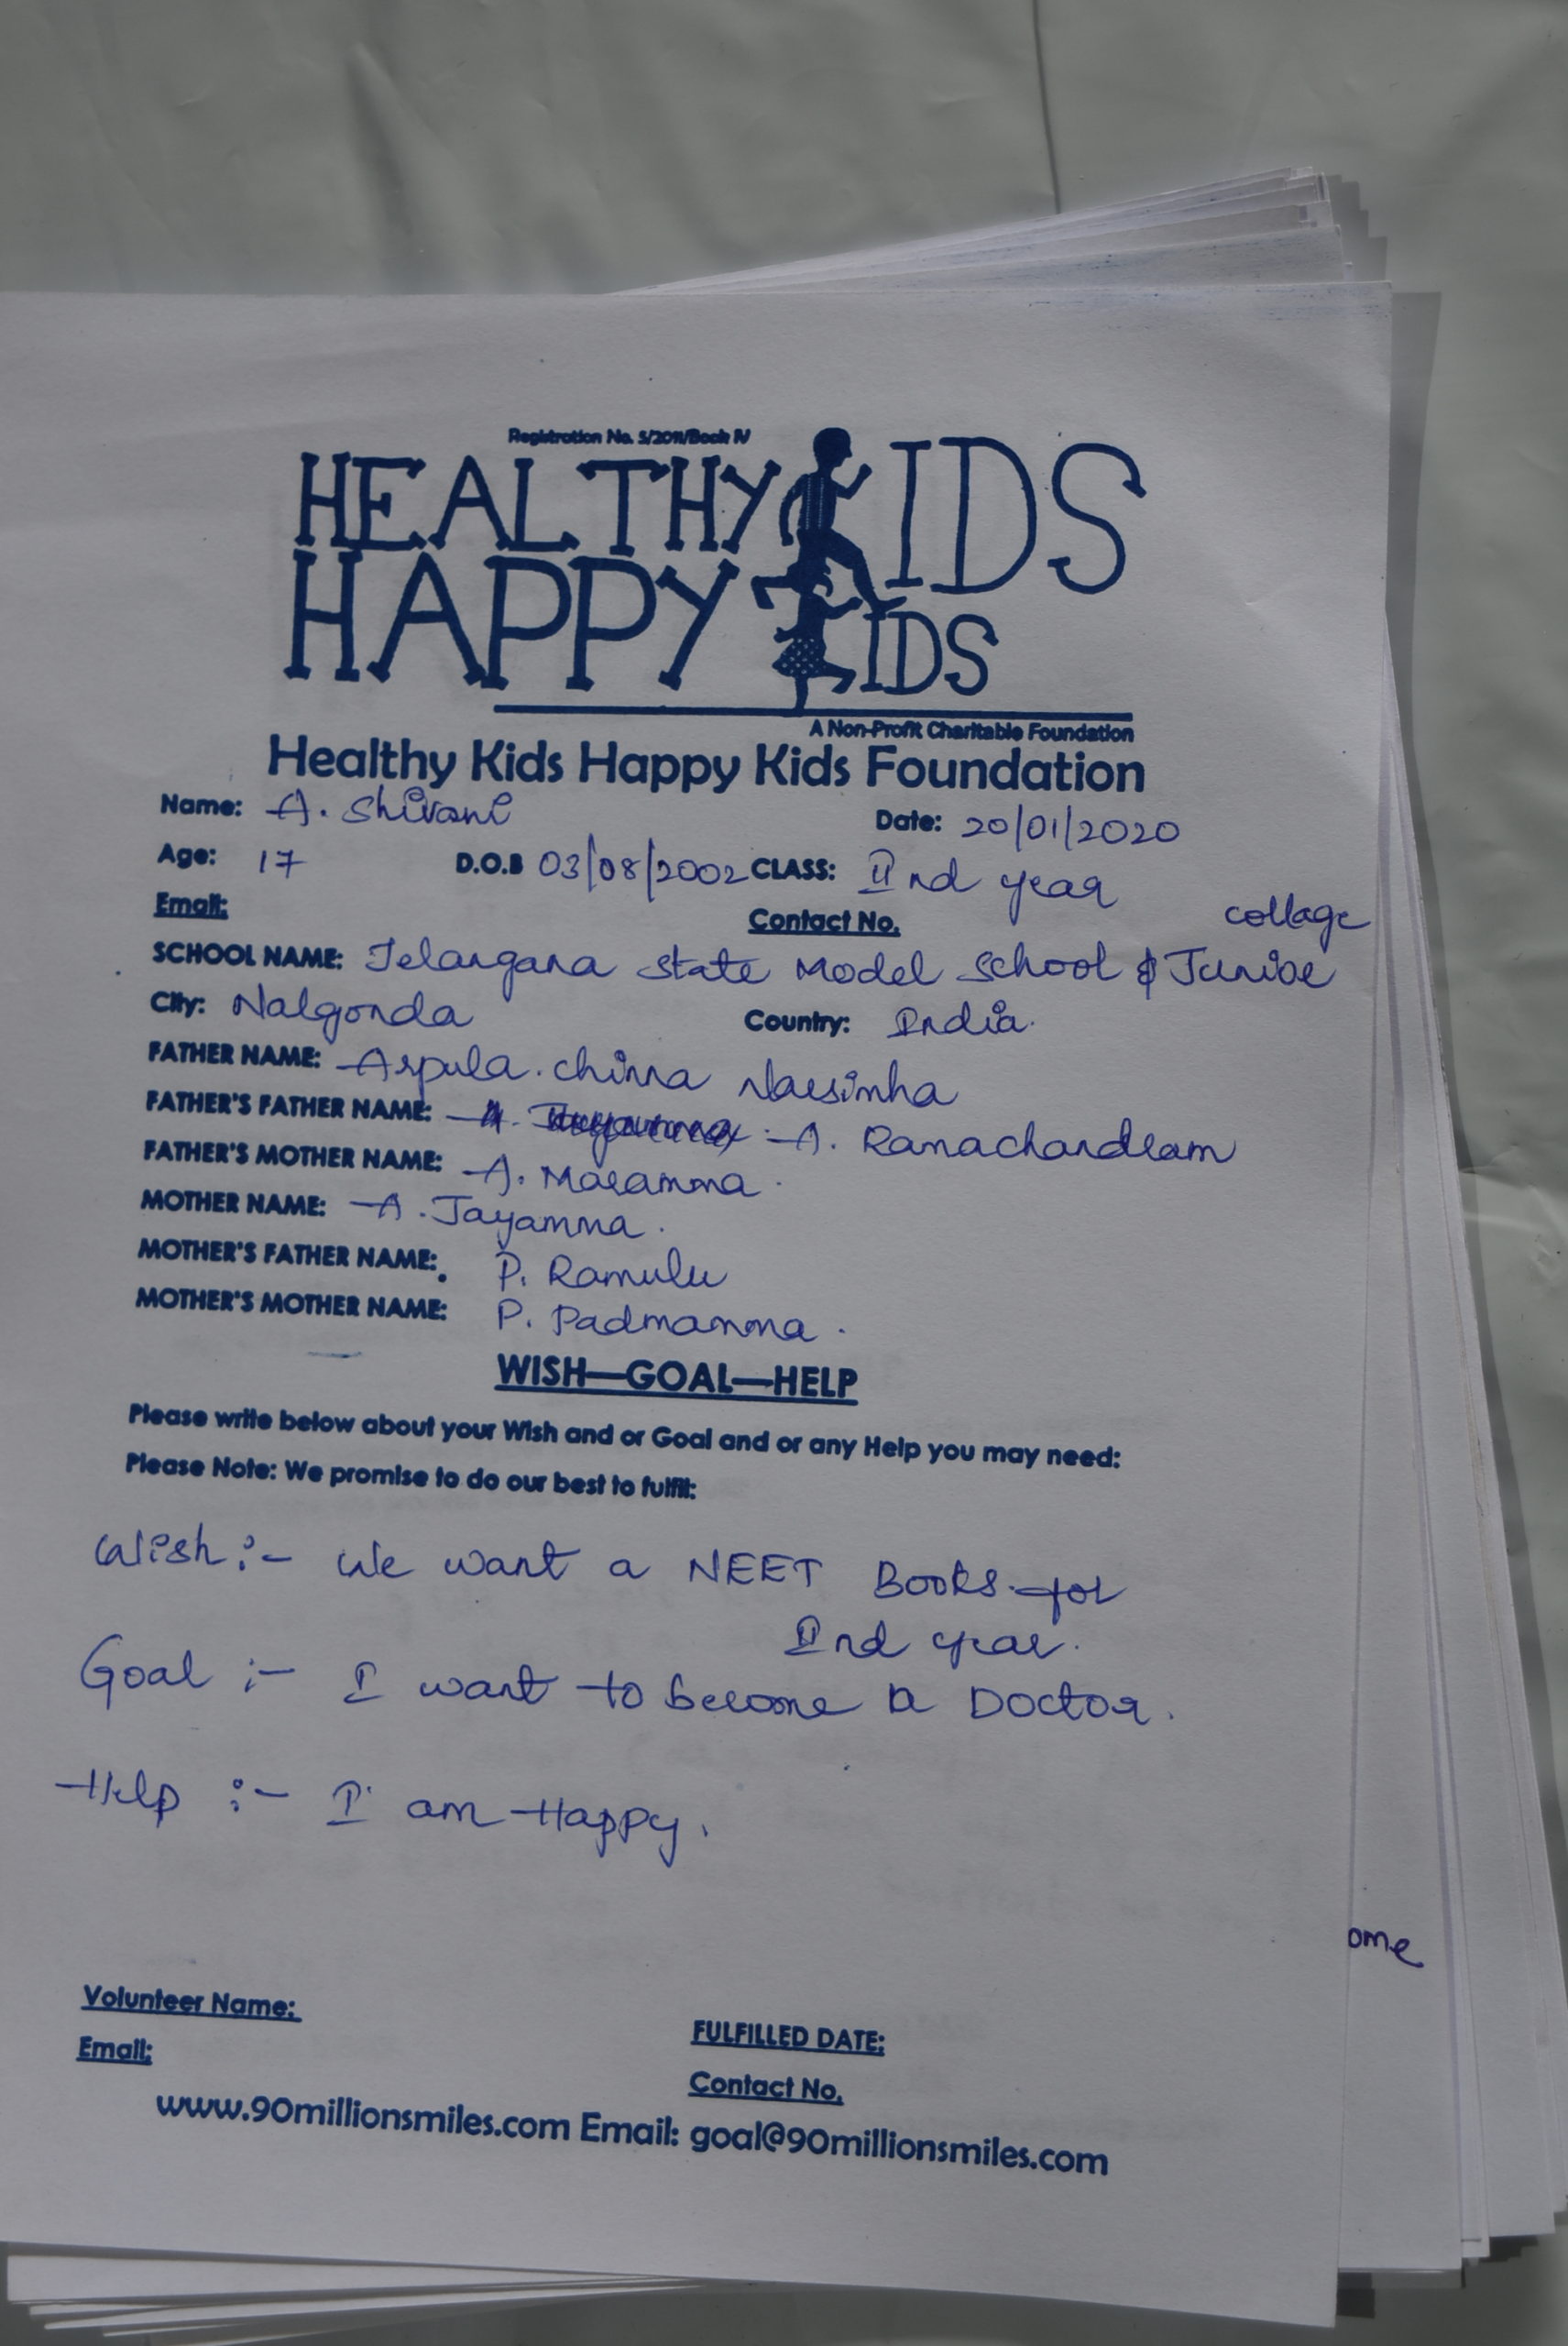 Registration No. 5/2011/Book IV
HEALTHY KIDS
HAPPY KIDS
A Non-Profit Charitable Foundation
Healthy Kids Happy Kids Foundation
Name: A. Shivani Date: 20/01/2020
Age: 17 D.O.B 03/08/2002 CLASS: IInd year
Email: Contact No.
collage
SCHOOL NAME: Telangana State Model School & Junior
City: Nalgonda Country: India.
FATHER NAME: Arpula. chinna Narsimha
FATHER'S FATHER NAME: A. Ramachandram
FATHER'S MOTHER NAME: A. Maramma.
MOTHER NAME: A. Jayamma.
MOTHER'S FATHER NAME: P. Ramulu
MOTHER'S MOTHER NAME: P. Padmamma.
WISH—GOAL—HELP
Please write below about your Wish and or Goal and or any Help you may need:
Please Note: We promise to do our best to fulfil:
Wish :- We want a NEET Books for
IInd year.
Goal :- I want to become a Doctor.
Help :- I am Happy.
ome
Volunteer Name: FULFILLED DATE:
Email: Contact No.
www.90millionsmiles.com Email: goal@90millionsmiles.com